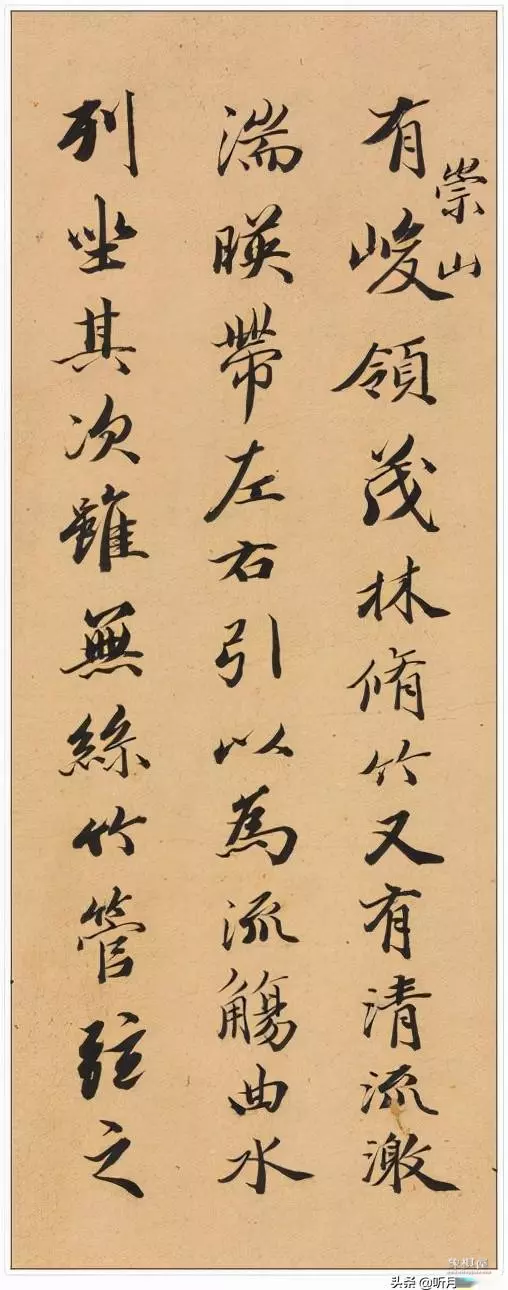 有崇山峻領茂林脩竹又有清流激
湍暎帶左右引以為流觴曲水
列坐其次雖無絲竹管弦之
头条 @听月